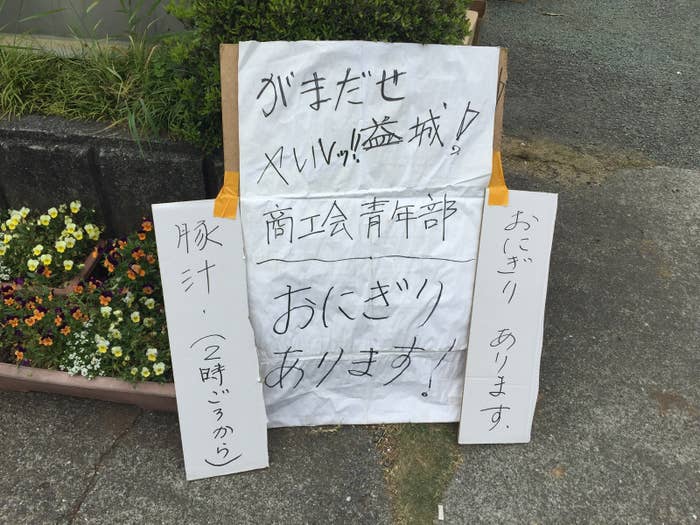 がまだせ
やいルッ!!益城!
商工会青年部
おにぎり
あります!
豚汁.(2時ごろから)
おにぎり あります.